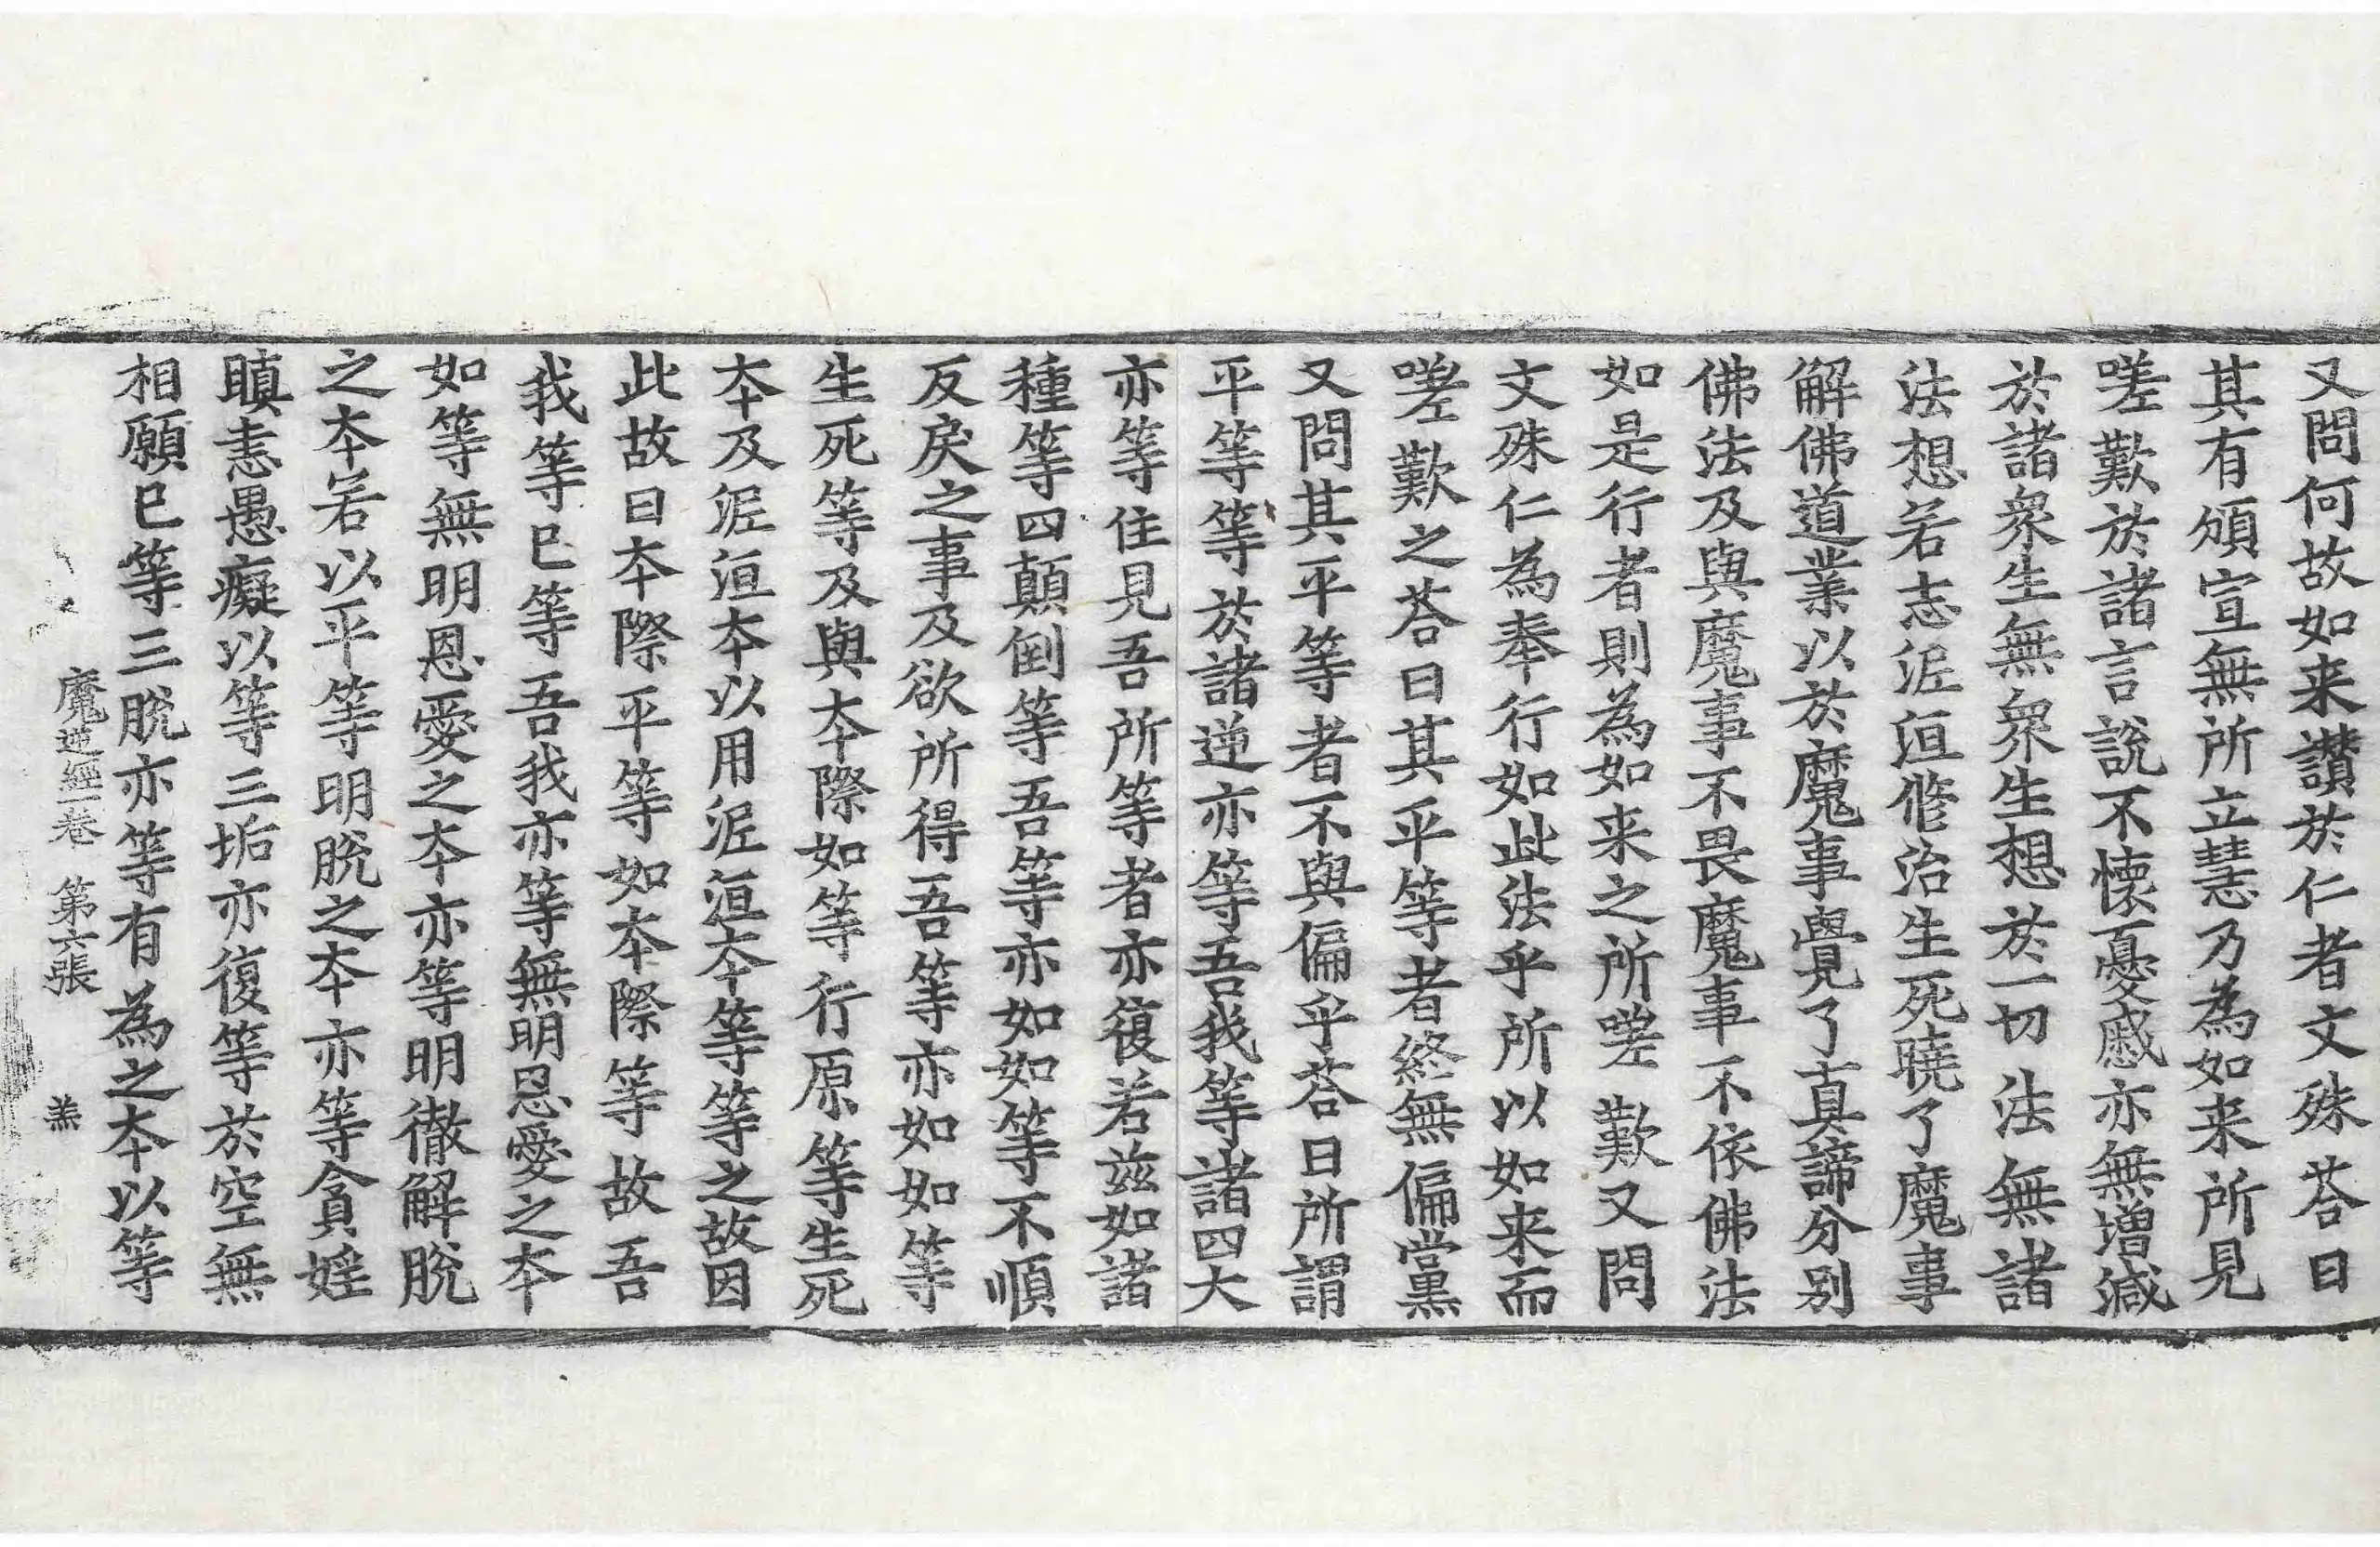 又問何故如来讃於仁者文殊荅曰
其有頒宣無所立慧乃為如来所見
嗟歎於諸言說不懷憂慼亦無增減
於諸衆生無衆生想於一切法無諸
法想若志泥洹脩治生死曉了魔事
解佛道業以於魔事覺了真諦分別
佛法及與魔事不畏魔事不依佛法
如是行者則為如来之所嗟歎又問
文殊仁為奉行如此法乎所以如来而
嗟歎之荅曰其平等者終無偏黨
又問其平等者不與偏乎荅曰所謂
平等等於諸逆亦等吾我等諸四大
亦等住見吾所等者亦復若茲如諸
種等四顛倒等吾等亦如如等不順
反戾之事及欲所得吾等亦如如等
生死等及與夲際如等行原等生死
夲及泥洹夲以用泥洹夲等等之故因
此故曰夲際平等如夲際等故吾
我等已等吾我亦等無明恩愛之夲
如等無明恩愛之夲亦等明徹解脫
之夲若以平等明脫之夲亦等貪婬
瞋恚愚癡以等三垢亦復等於空無
相願已等三脫亦等有為之夲以等
魔逆經一卷　第六張　羔